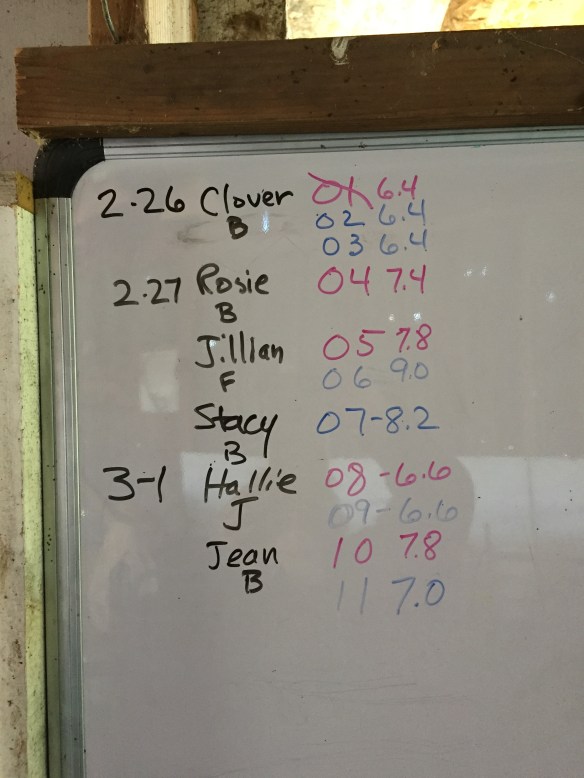 2-26 Clover 01 6.4
B 02 6.4
03 6.4
2-27 Rosie 04 7.4
B
Jillian 05 7.8
F 06 9.0
Stacy 07-8.2
B
3-1 Hallie 08-6.6
J 09-6.6
Jean 10 7.8
B 11 7.0